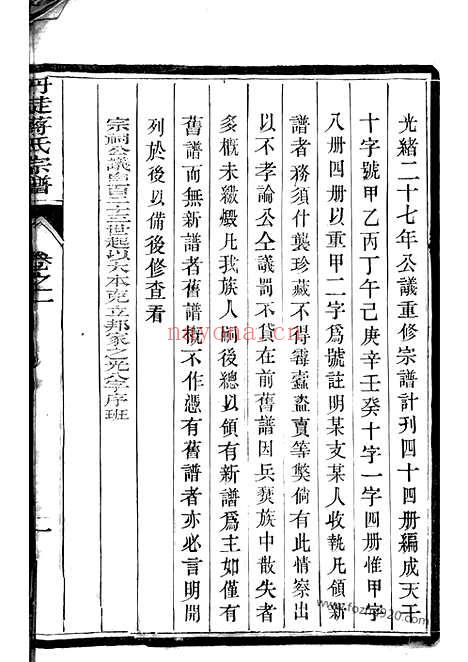 光緒二十七年公議重修宗譜計刊四十四册編成天干
十字號甲乙丙丁午己庚辛壬癸十字一字四册惟甲字
八册四册以重甲二字爲號註明某支某人收執凡領新
譜者務須什襲珍藏不得霉蠧盜賣等獘倘有此情察出
以不孝論公仝議罰不貸在前舊譜因兵燹族中散失者
多概未繳燬凡我族人嗣後總以領有新譜爲主如僅有
舊譜而無新譜者舊譜旣不作憑有舊譜者亦必言明開
列於後以備後修查看
宗祠公議自百二十三世起以大本克立邦家之光八字序班
丹徒蔣氏宗譜
卷之一
一
nayona.cn
www.fozhu920.com